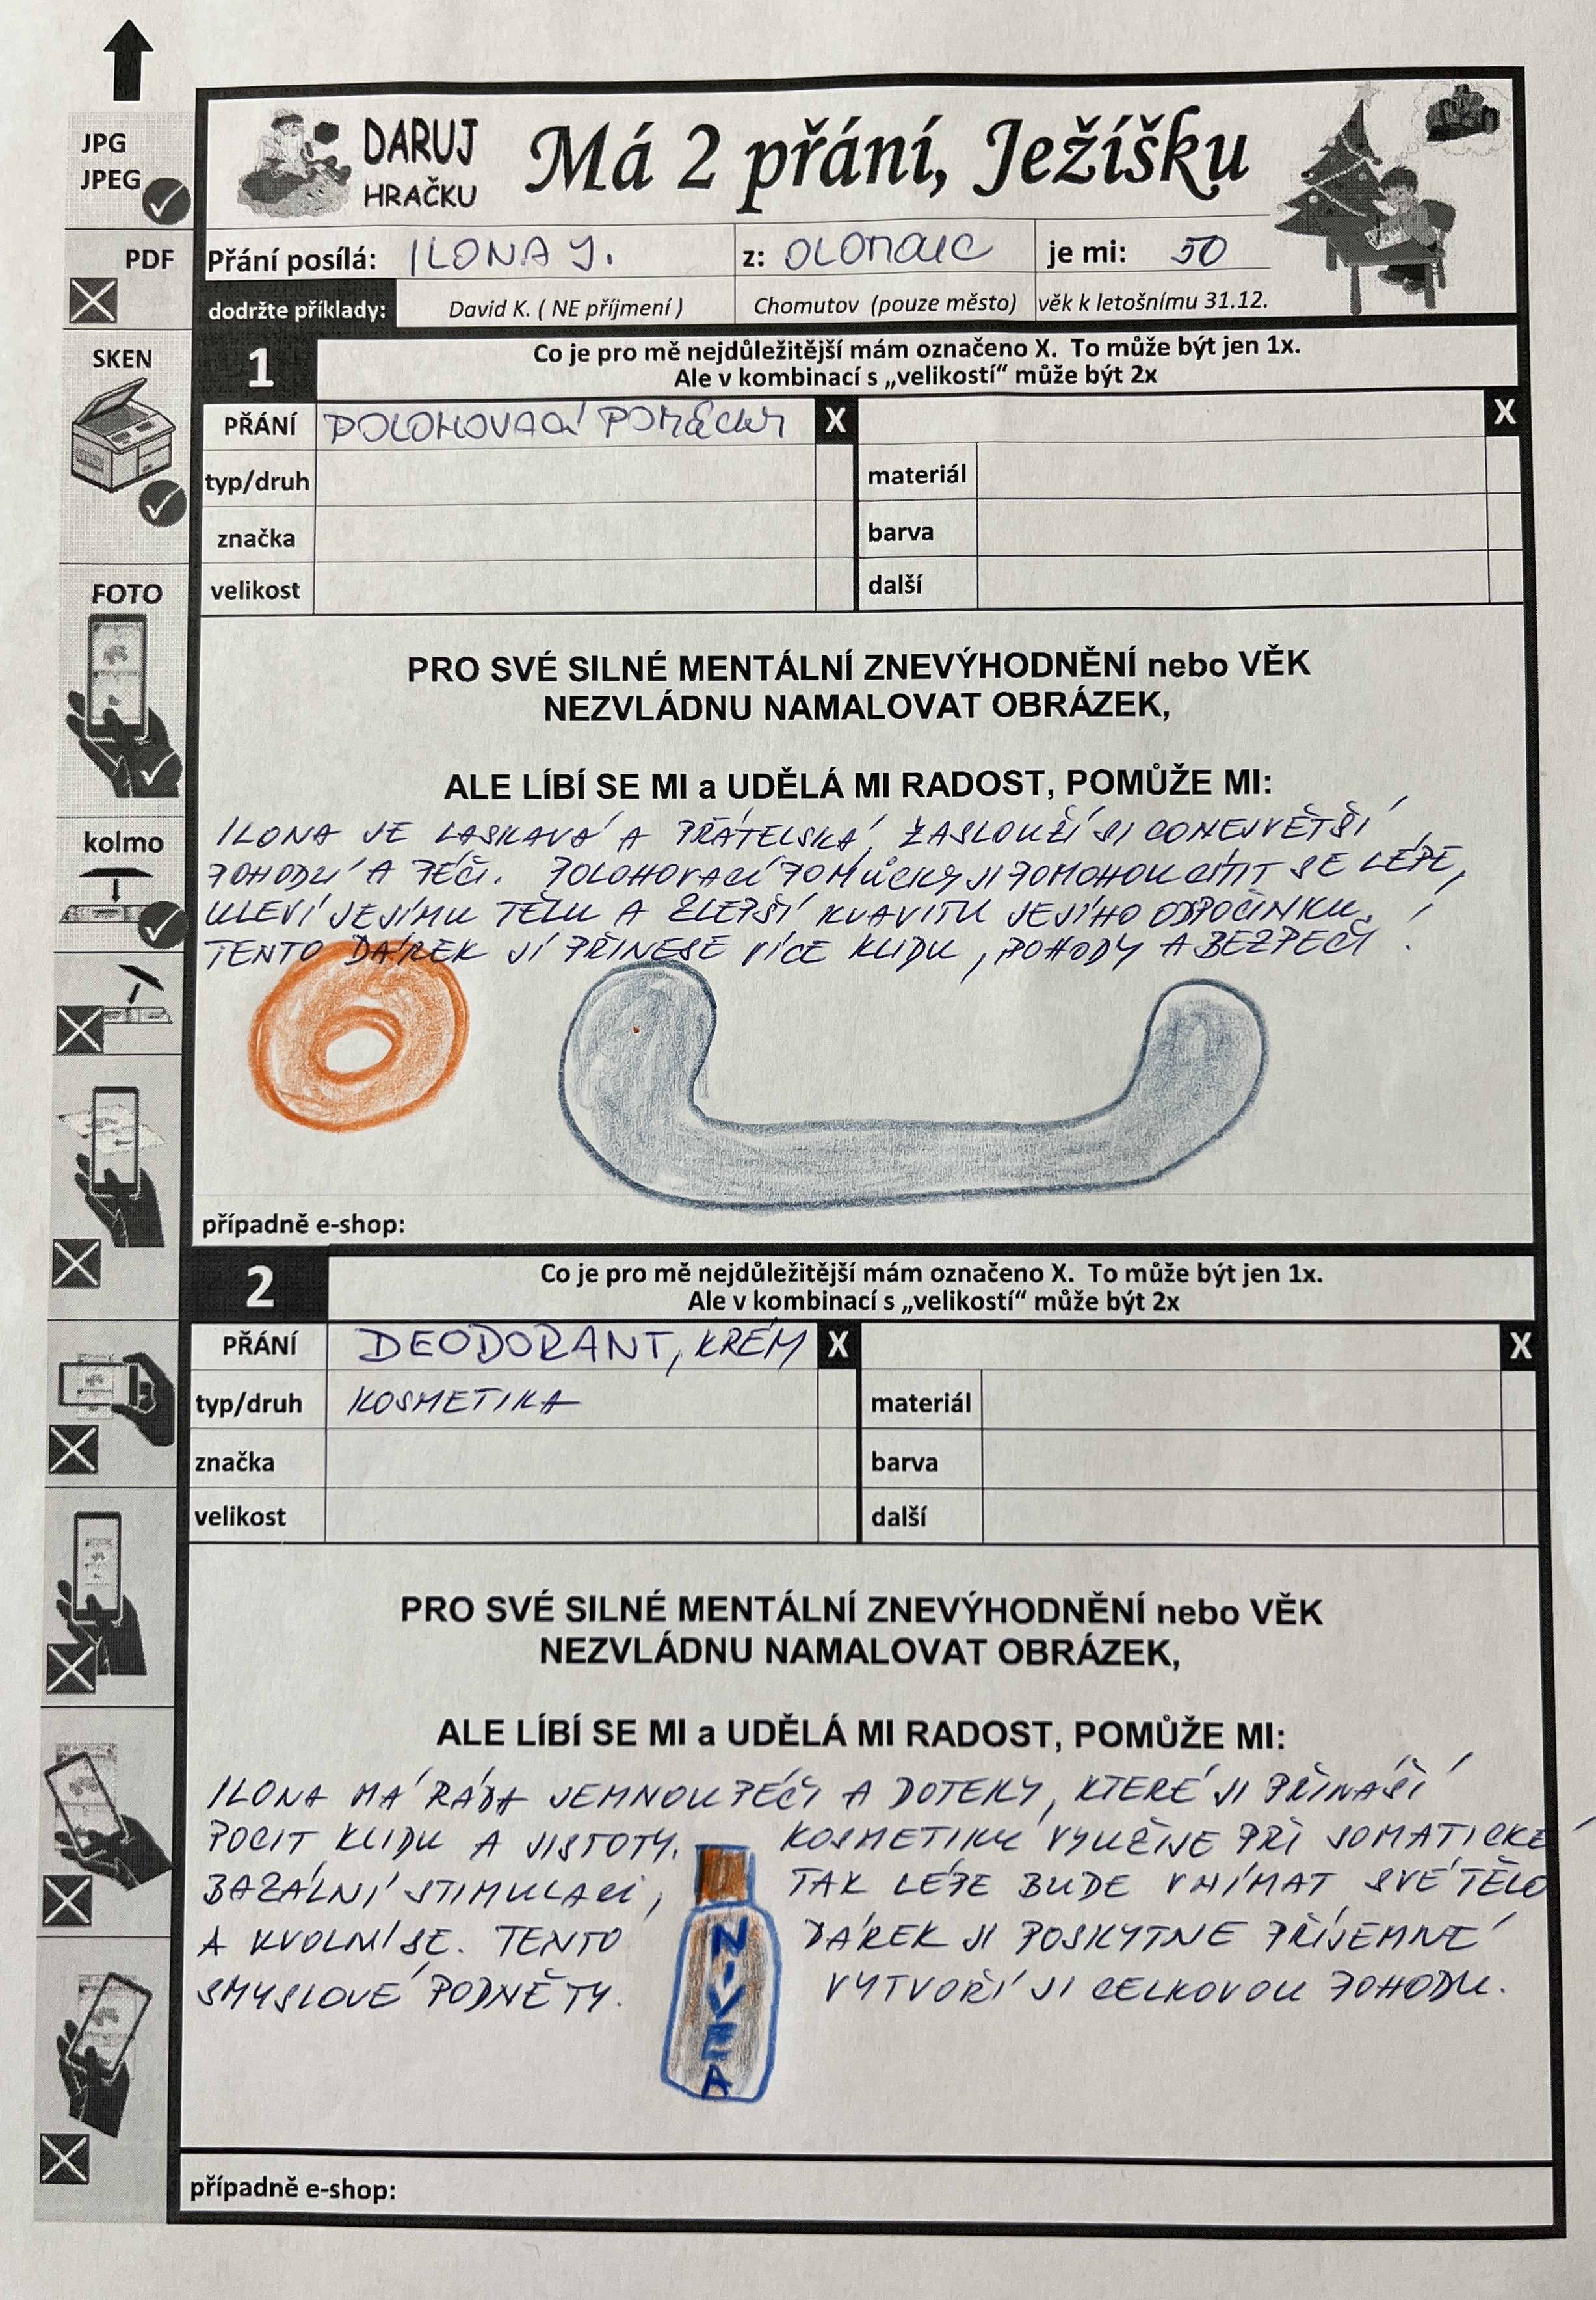 JPG
JPEG
PDF
SKEN
FOTO
kolmo
DARUJ
HRAČKU
Má 2 přání, Ježíšku
Přání posílá: ILONA J. z: OLOMOUC je mi: 50
dodržte příklady: David K. ( NE příjmení ) Chomutov (pouze město) věk k letošnímu 31.12.
1 Co je pro mě nejdůležitější mám označeno X. To může být jen 1x.
Ale v kombinací s „velikostí“ může být 2x
PŘÁNÍ POLOHOVACÍ POMŮCKY X X
typ/druh materiál
značka barva
velikost další
PRO SVÉ SILNÉ MENTÁLNÍ ZNEVÝHODNĚNÍ nebo VĚK
NEZVLÁDNU NAMALOVAT OBRÁZEK,
ALE LÍBÍ SE MI a UDĚLÁ MI RADOST, POMŮŽE MI:
ILONA JE LASKAVÁ A PŘÁTELSKÁ, ZASLOUŽÍ SI CONEJVĚTŠÍ
POHODLÍ A PÉČI. POLOHOVACÍ POMŮCKY JÍ POMOHOU CÍTIT SE LÉPE,
ULEVÍ JEJÍMU TĚLU A ZLEPŠÍ KVALITU JEJÍHO ODPOČINKU.
TENTO DÁREK JÍ PŘINESE VÍCE KLIDU, POHODY A BEZPEČÍ.
případně e-shop:
2 Co je pro mě nejdůležitější mám označeno X. To může být jen 1x.
Ale v kombinací s „velikostí“ může být 2x
PŘÁNÍ DEODORANT, KRÉM X X
typ/druh KOSMETIKA materiál
značka barva
velikost další
PRO SVÉ SILNÉ MENTÁLNÍ ZNEVÝHODNĚNÍ nebo VĚK
NEZVLÁDNU NAMALOVAT OBRÁZEK,
ALE LÍBÍ SE MI a UDĚLÁ MI RADOST, POMŮŽE MI:
ILONA MÁ RÁDA JEMNOU PÉČI A DOTEKY, KTERÉ JI PŘINÁŠÍ
POCIT KLIDU A JISTOTY. KOSMETIKU VYUŽIJE PŘI SOMATICKÉ
BAZÁLNÍ STIMULACI, TAK LÉPE BUDE VNÍMAT SVÉ TĚLO
A UVOLNÍ SE. TENTO DÁREK JI POSKYTNE PŘÍJEMNÉ
SMYSLOVÉ PODNĚTY. VYTVOŘÍ JI CELKOVOU POHODU.
NIVEA
případně e-shop: